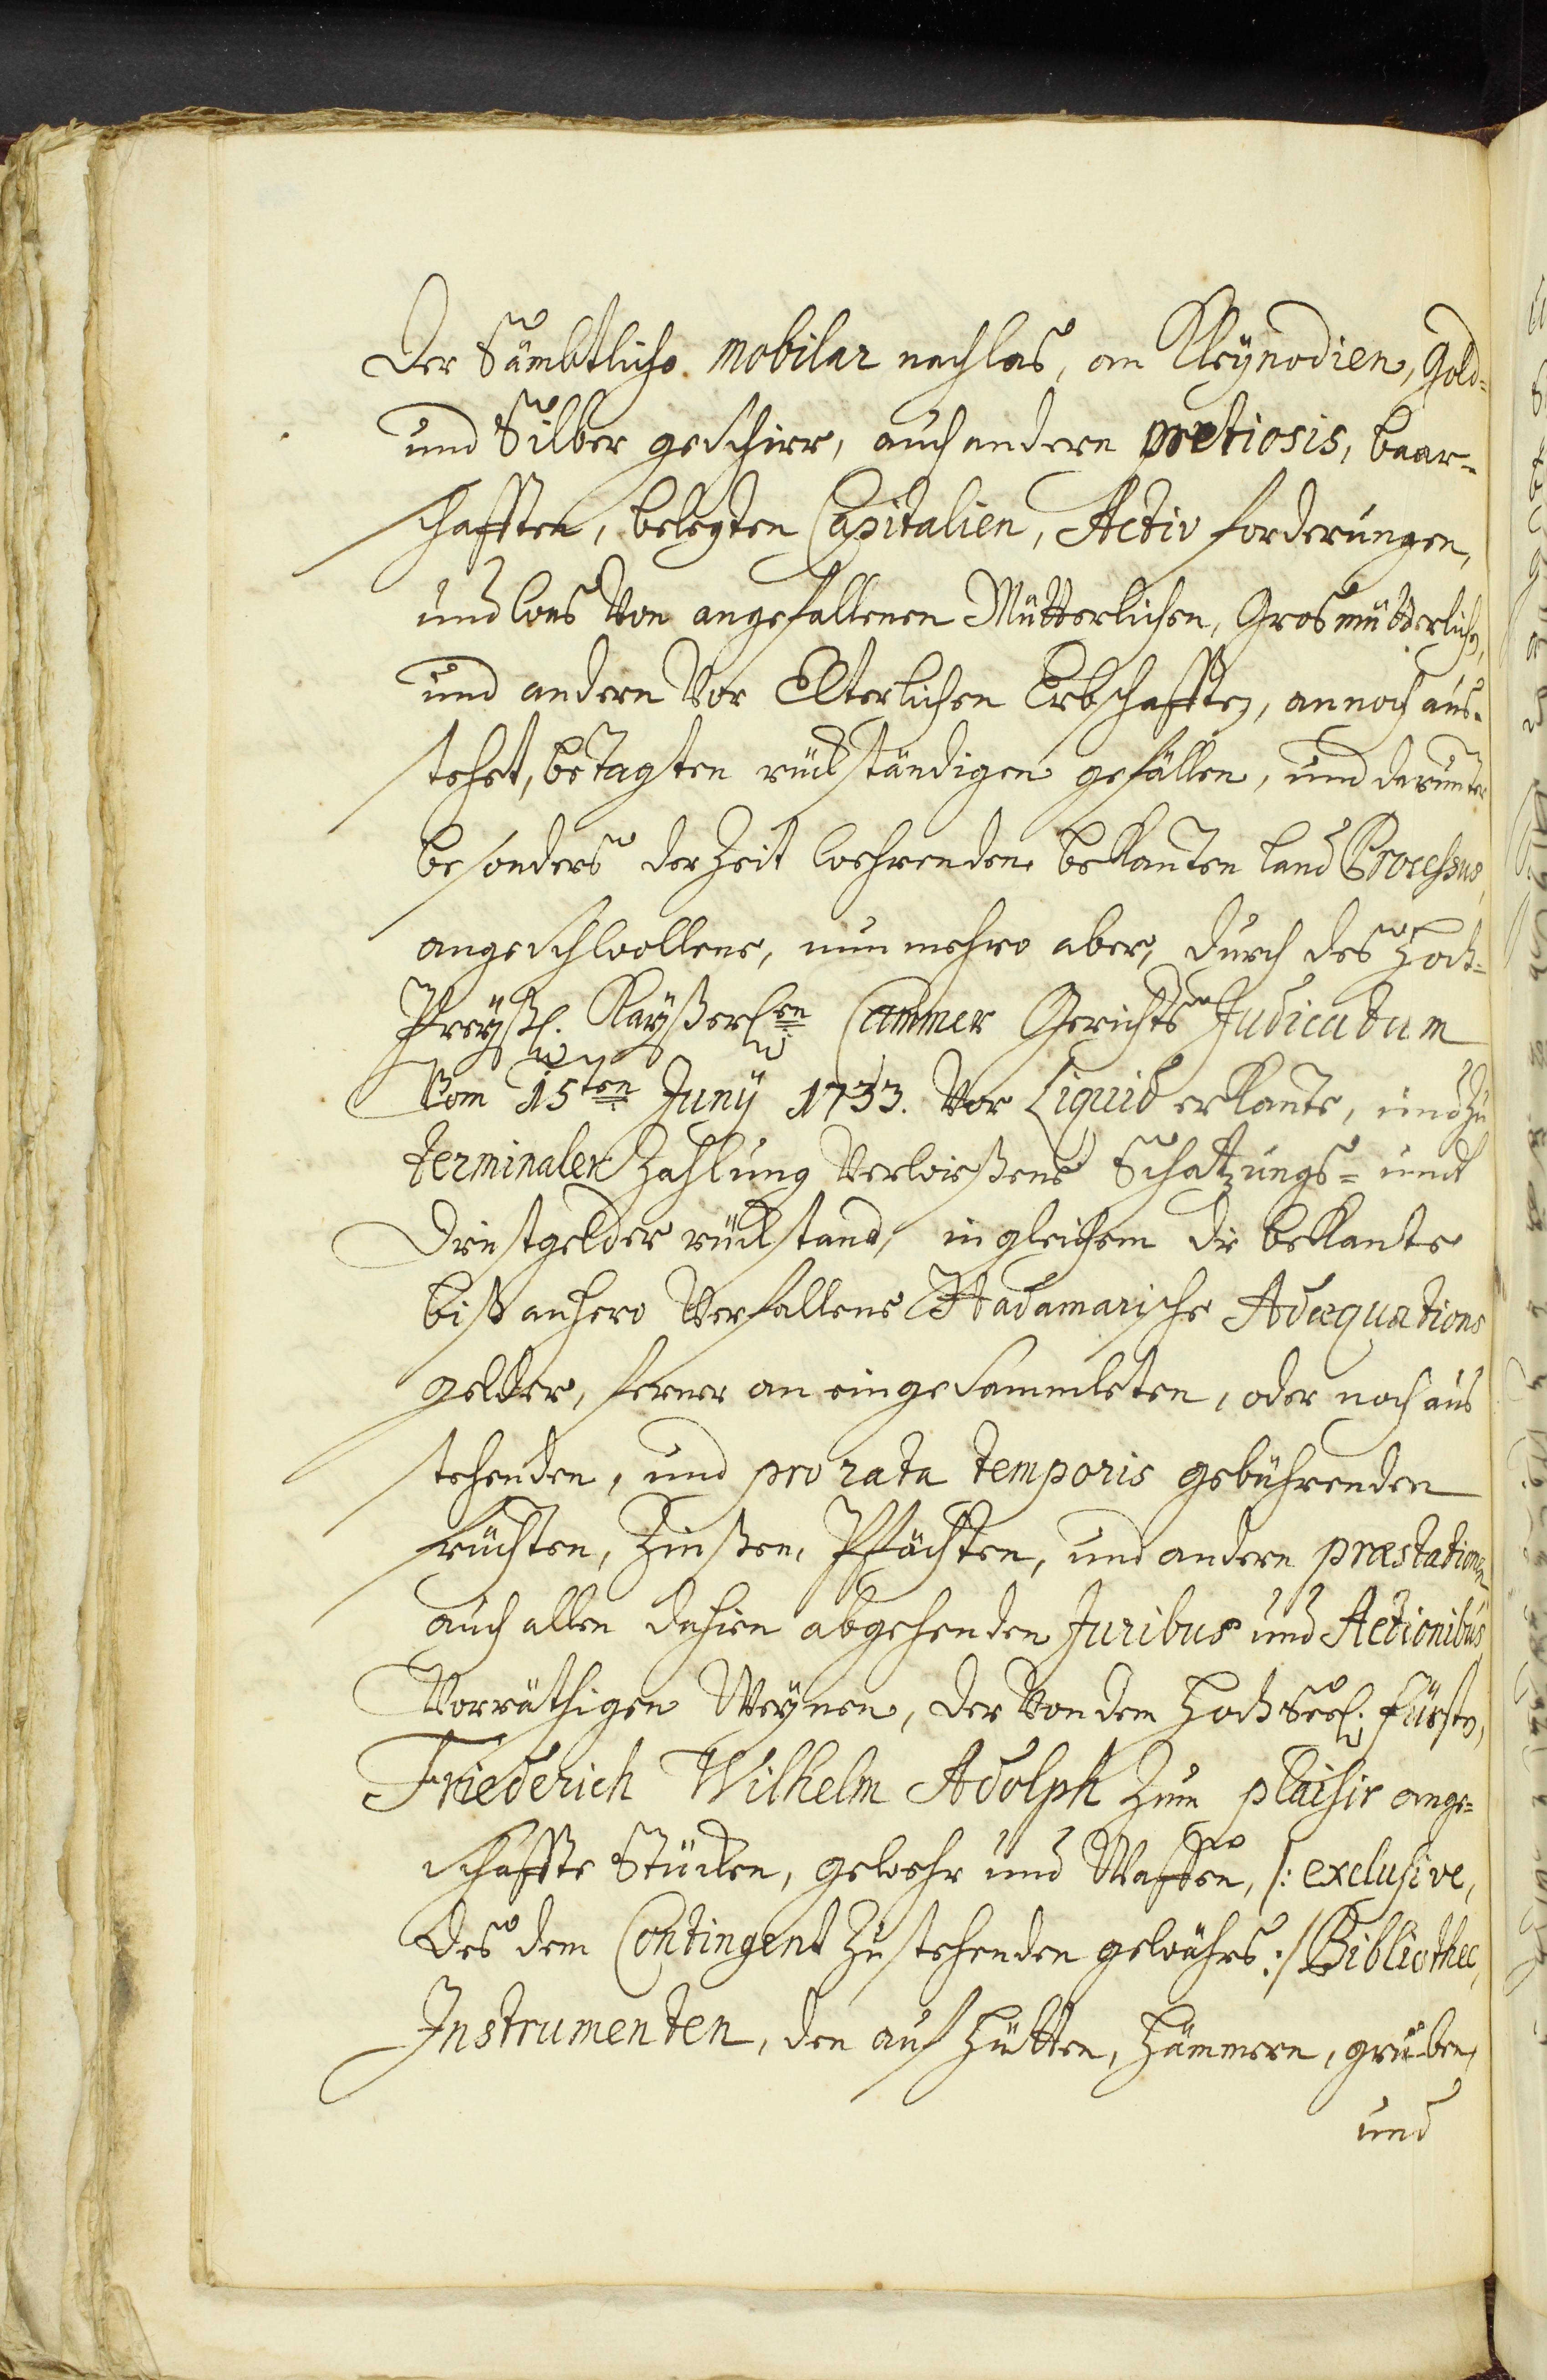 Der Sämbtliche mobilar nachlas, an Kleÿnodien, Gold=
und Silber geschirr, auch andern pretiosis, baar=
schafften, belegten Capitalien, Activ forderungen,
und was Von angefallenen Mütterlichen, Grosmütterlichen,
und andern Vor Elterlichen Erbschafften, annoch aus=
stehet, betagten rückständigen gefällen, und darunter
besonders der Zeit wehrenden bekanten land Processus,
angeschwollene, nunmehro aber, durch des Hoch=
Preÿßl. Kaÿßerl.en Cammer Gerichts Judicatum
Vom 15ten Junÿ 1733. Vor Liquid erkante, und zu
terminalen Zahlung Verwießene Schatzungs= undt
Dinstgelder rückstand, ingleichem die bekante
biß anhero Verfallene Hadamarische Adæquations
gelder, ferner an eingesammleten, oder noch aus
stehenden, und pro rata temporis gebührenden
früchten, Zinßen, Pfächten, und andern præstationen
auch allen dahien abgehenden Juribus und Actionibus
Vorräthigen Weÿnen, der Von dem HochSeel. Fürsten,
Friederich Wilhelm Adolph Zum plaisir ange=
schaffte Stücken, gewehr und Waffen, /: exclusive,
des dem Contingent Zustehenden gewährs :/ Bibliothec,
Instrumenten, den auf Hütten, Hämmern, gruben,
und